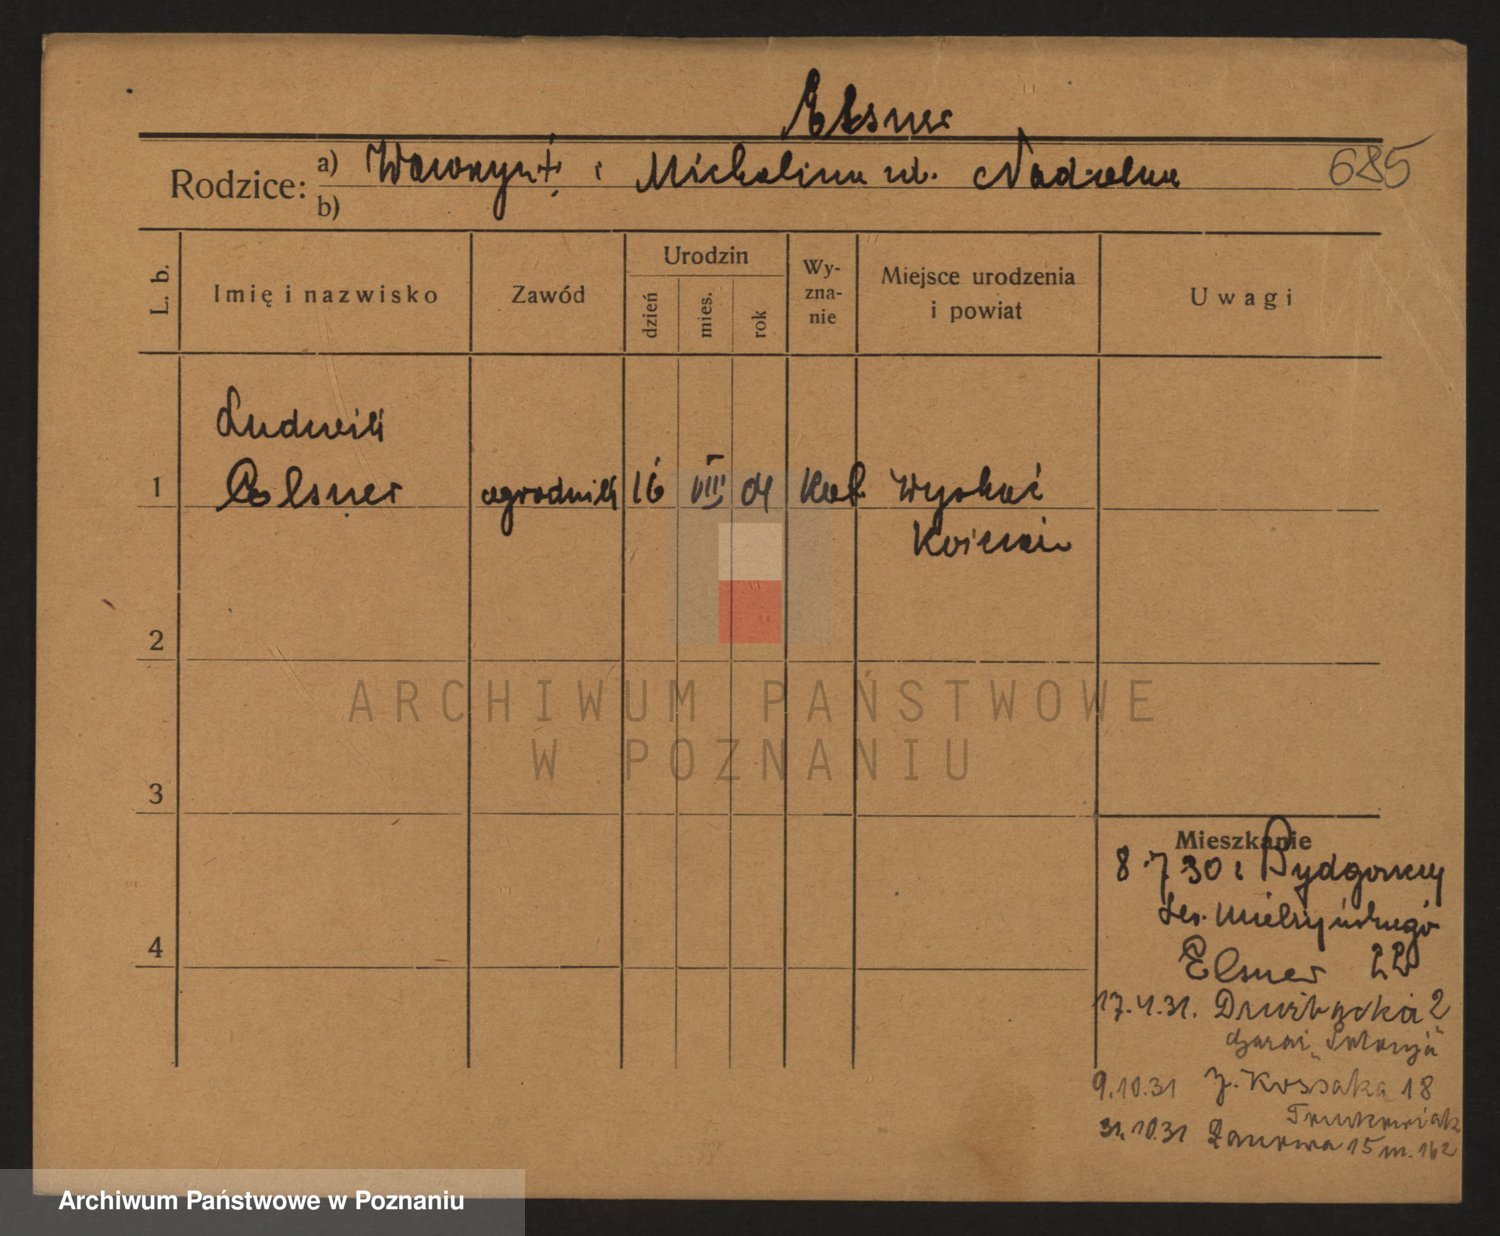 Elsner
Rodzice: a) Wawrzyn + i Michalina ur. Nadolna
b)
685
L. b.
Imię i nazwisko
Zawód
Urodzin
dzień
mies.
rok
Wy-
zna-
nie
Miejsce urodzenia
i powiat
Uwagi
Ludwik
1 Elsner ogrodnik 16 VIII 04 Kat. Wyskoć
Kościan
2
3
4
ARCHIWUM PAŃSTWOWE
W POZNANIU
Mieszkanie
8.7 30 z Bydgoszczy
Sew. Mielżyńskiego
Elsner 22
17.4.31. Drużbacka 2
9.10.31 J. Kossaka 18
31.10.31 15 m. 162
Archiwum Państwowe w Poznaniu